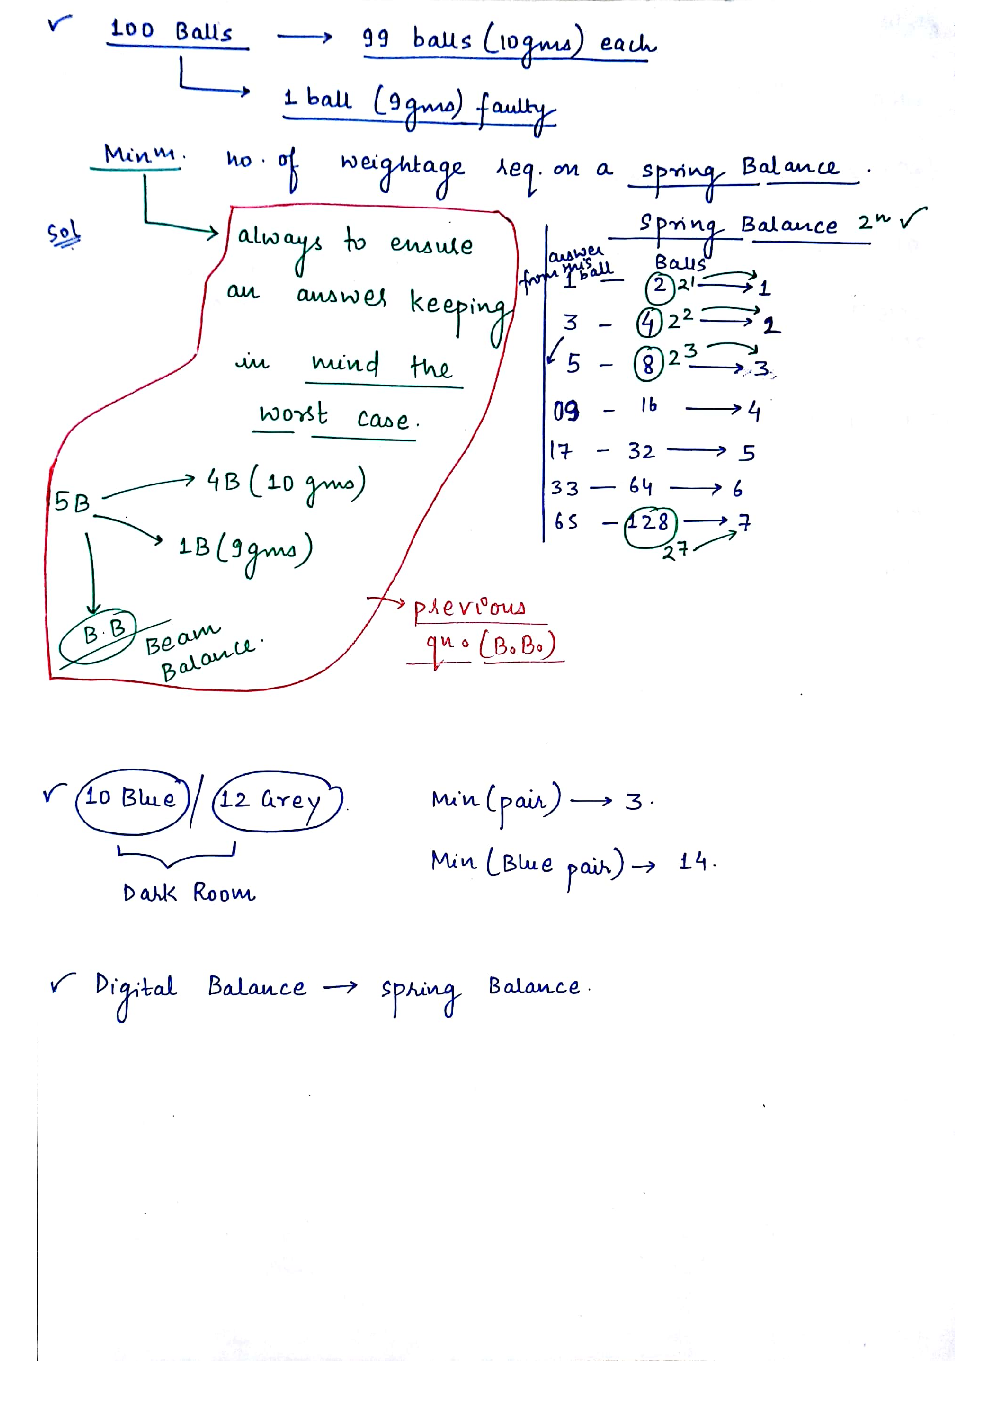 ✓ 100 Balls → 99 balls (10gms) each
→ 1 ball (9gms) faulty
Minm. no. of weightage req. on a spring Balance.
Sol
→ always to ensure
an answer keeping
in mind the
worst case.
5B → 4B (10 gms)
→ 1B (9gms)
B.B Beam
Balance.
→ previous
qu. (B.B.)
Spring Balance 2ⁿ ✓
answer
from this
ball Balls
1 — 2 2¹ → 1
3 – 4 2² → 2
✓ 5 – 8 2³ → 3
09 – 16 → 4
17 – 32 → 5
33 – 64 → 6
65 – 128 → 7
2⁷ →
✓ 10 Blue / 12 Grey Min (pair) → 3.
Min (Blue pair) → 14.
Dark Room
✓ Digital Balance → spring Balance.